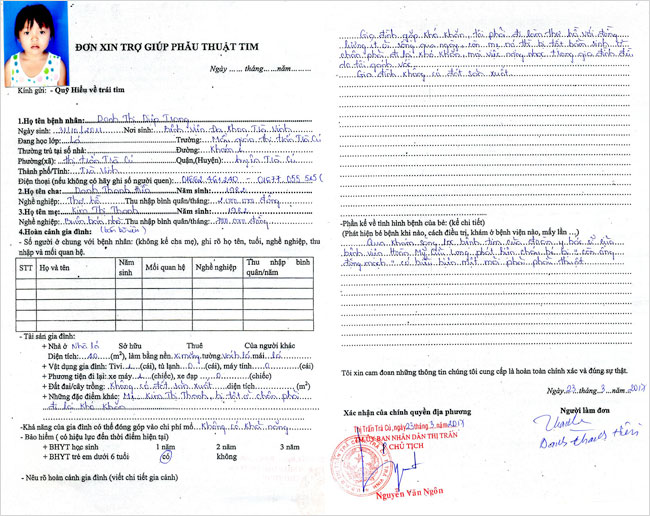 ĐƠN XIN TRỢ GIÚP PHẪU THUẬT TIM
Ngày ...... tháng.....năm...........
Kính gửi: - Quỹ Hiểu về trái tim
1.Họ tên bệnh nhân: Danh Thị Diệp Trang
Ngày sinh: 31/10/2011 Nơi sinh: Bệnh viện Đa Khoa Trà Vinh
Đang học lớp: Lá Trường: Mẫu giáo thị trấn Trà Cú
Thường trú tại số nhà: Đường: Khóm
Phường(xã): thị trấn Trà Cú Quận,(Huyện): huyện Trà Cú
Thành phố/Tỉnh: Trà Vinh
Điện thoại (nếu không có hãy ghi số người quen)
2.Họ tên cha: Danh Thanh Năm sinh: 1982
Nghề nghiệp: Thợ hồ Thu nhập bình quân/tháng: 2.000.000 đồng
3.Họ tên mẹ: Kim Thị Thanh Năm sinh: 1982
Nghề nghiệp: Buôn bán nhỏ Thu nhập bình quân/tháng: 700.000 đồng
4.Hoàn cảnh gia đình:
- Số người ở chung với bệnh nhân: (không kể cha mẹ), ghi rõ họ tên, tuổi, nghề nghiệp, thu
nhập và mối quan hệ.
STT Họ và tên Năm sinh Mối quan hệ Nghề nghiệp Thu nhập bình quân/năm
- Tài sản gia đình:
+ Nhà ở Nhà lá Sở hữu Thuê Của người khác
Diện tích: 40 (m²), làm bằng nền xi măng tường vách lá mái lá
+ Vật dụng gia đình: Tivi 1 (cái), tủ lạnh 0 (cái), máy tính 0 (cái)
+ Phương tiện đi lại: xe máy 1 (chiếc), xe đạp 0 (chiếc)
+ Đất đai/cây trồng: Không có đất sản xuất diện tích (m²)
+ Những đặc điểm khác: Mẹ Kim Thị Thanh bị tật ở chân phải
đi lại khó khăn
-Khả năng của gia đình có thể đóng góp vào chi phí mổ: Không có khả năng
- Bảo hiểm ( có hiệu lực đến thời điểm hiện tại)
+ BHYT học sinh 1 năm 2 năm 3 năm
+ BHYT trẻ em dưới 6 tuổi có không
- Nêu rõ hoàn cảnh gia đình (viết chi tiết gia cảnh)
Gia đình gặp khó khăn, tôi phải đi làm thợ hồ với đồng
lương ít ỏi sống qua ngày, còn mẹ nó thì bị tật bẩm sinh ở
chân phải đi lại khó khăn mọi việc nặng nhọc trong gia đình đều
do tôi gánh vác.
Gia đình không có đất sản xuất.
-Phần kể về tình hình bệnh của bé: (kể chi tiết)
(Phát hiện bệnh khi nào, cách điều trị, khám ở bệnh viện nào, mấy lần ...)
Qua khám sàng lọc bệnh tim của đoàn y bác sĩ
bệnh viện Hoàn Mỹ Cửu Long phát hiện cháu bé bị còn ống
động mạch
Tôi xin cam đoan những thông tin chúng tôi cung cấp là hoàn toàn chính xác và đúng sự thật.
Ngày 23 tháng 3 năm 2017
Xác nhận của chính quyền địa phương
Người làm đơn
Thị Trấn Trà Cú, ngày 23 tháng 3 năm 2017
TM.ỦY BAN NHÂN DÂN THỊ TRẤN
CHỦ TỊCH
Nguyễn Văn Ngôn
Danh Thanh